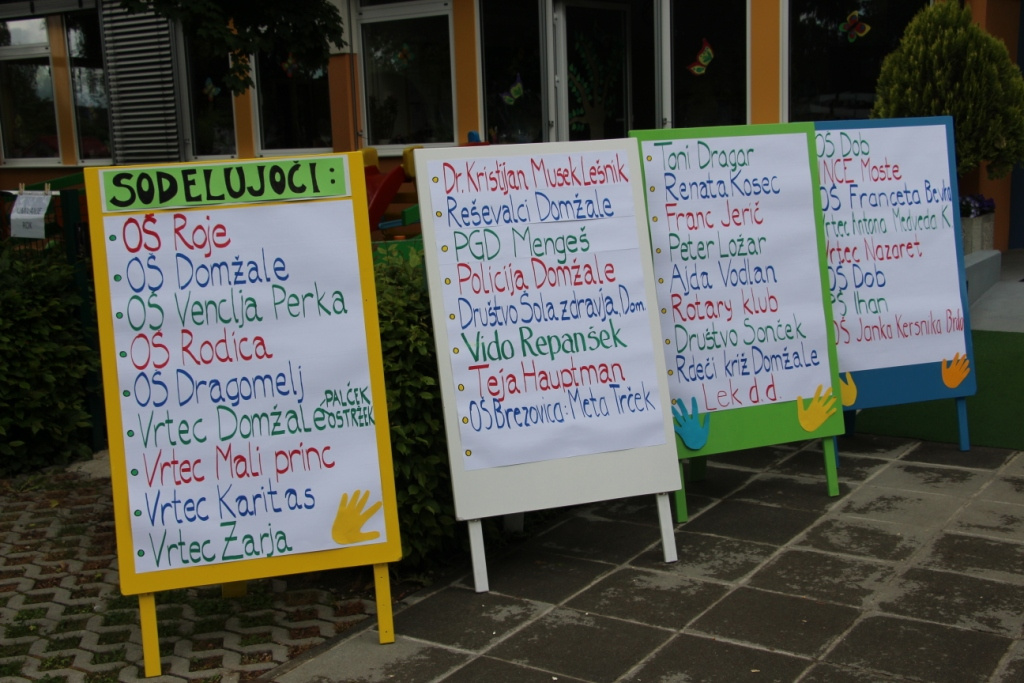 SODELUJOČI:
OŠ Roje
OŠ Domžale
OŠ Venclja Perka
OŠ Rodica
OŠ Dragomelj
Vrtec Domžale PALČEK OSTRŽEK
Vrtec Mali princ
Vrtec Karitas
Vrtec Žarja
Dr. Kristijan Musek Lešnik
Reševalci Domžale
PGD Mengeš
Policija Domžale
Društvo Šola zdravja, Dom.
Vido Repanšek
Teja Hauptman
OŠ Brezovica: Meta Trček
Toni Dragar
Renata Kosec
Franc Jerič
Peter Ložar
Ajda Vodlan
Rotary klub
Društvo Sonček
Rdeči križ Domžale
Lek d.d.
OŠ Dob
Moste
OŠ Franceta Bevka
Vrtec Antona Medveda K
Vrtec Nazaret
OŠ Dob
Ihan
OŠ Janka Kersnika Brdo